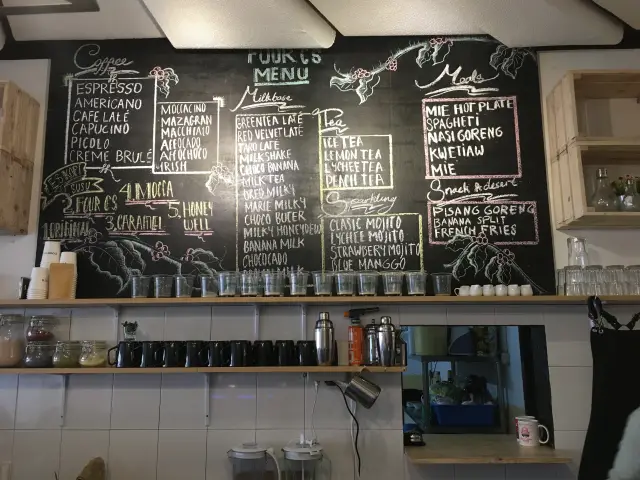 Coffee
ESPRESSO
AMERICANO
CAFE LATÉ
CAPUCINO
PICOLO
CREME BRULÉ
MOCCACINO
MAZAGRAN
MACCHIATO
AFFOCADO
AFFOCHOCO
IRISH
SUSU
FOUR C'S
1.ORIGINAL
3.CARAMEL
4.MOCCA
5. HONEY
WELL
FOUR C'S
MENU
Milkbase
GREENTEA LATÉ
RED VELVET LATÉ
TARO LATE
MILKSHAKE
CHOCO BANANA
MILK TEA
OREO MILKY
MARIE MILKY
CHOCO BUGER
MILKY HONEYDEW
BANANA MILK
CHOCOCADO
Tea
ICE TEA
LEMON TEA
LYCHEE TEA
PEACH TEA
Sparkling
CLASIC MOJITO
LYCHEE MOJITO
STRAWBERY MOJITO
BLUE MANGGO
Meals
MIE HOT PLATE
SPAGHETI
NASI GORENG
KWETIAW
MIE
Snack & desert
PISANG GORENG
BANANA SPLIT
FRENCH FRIES